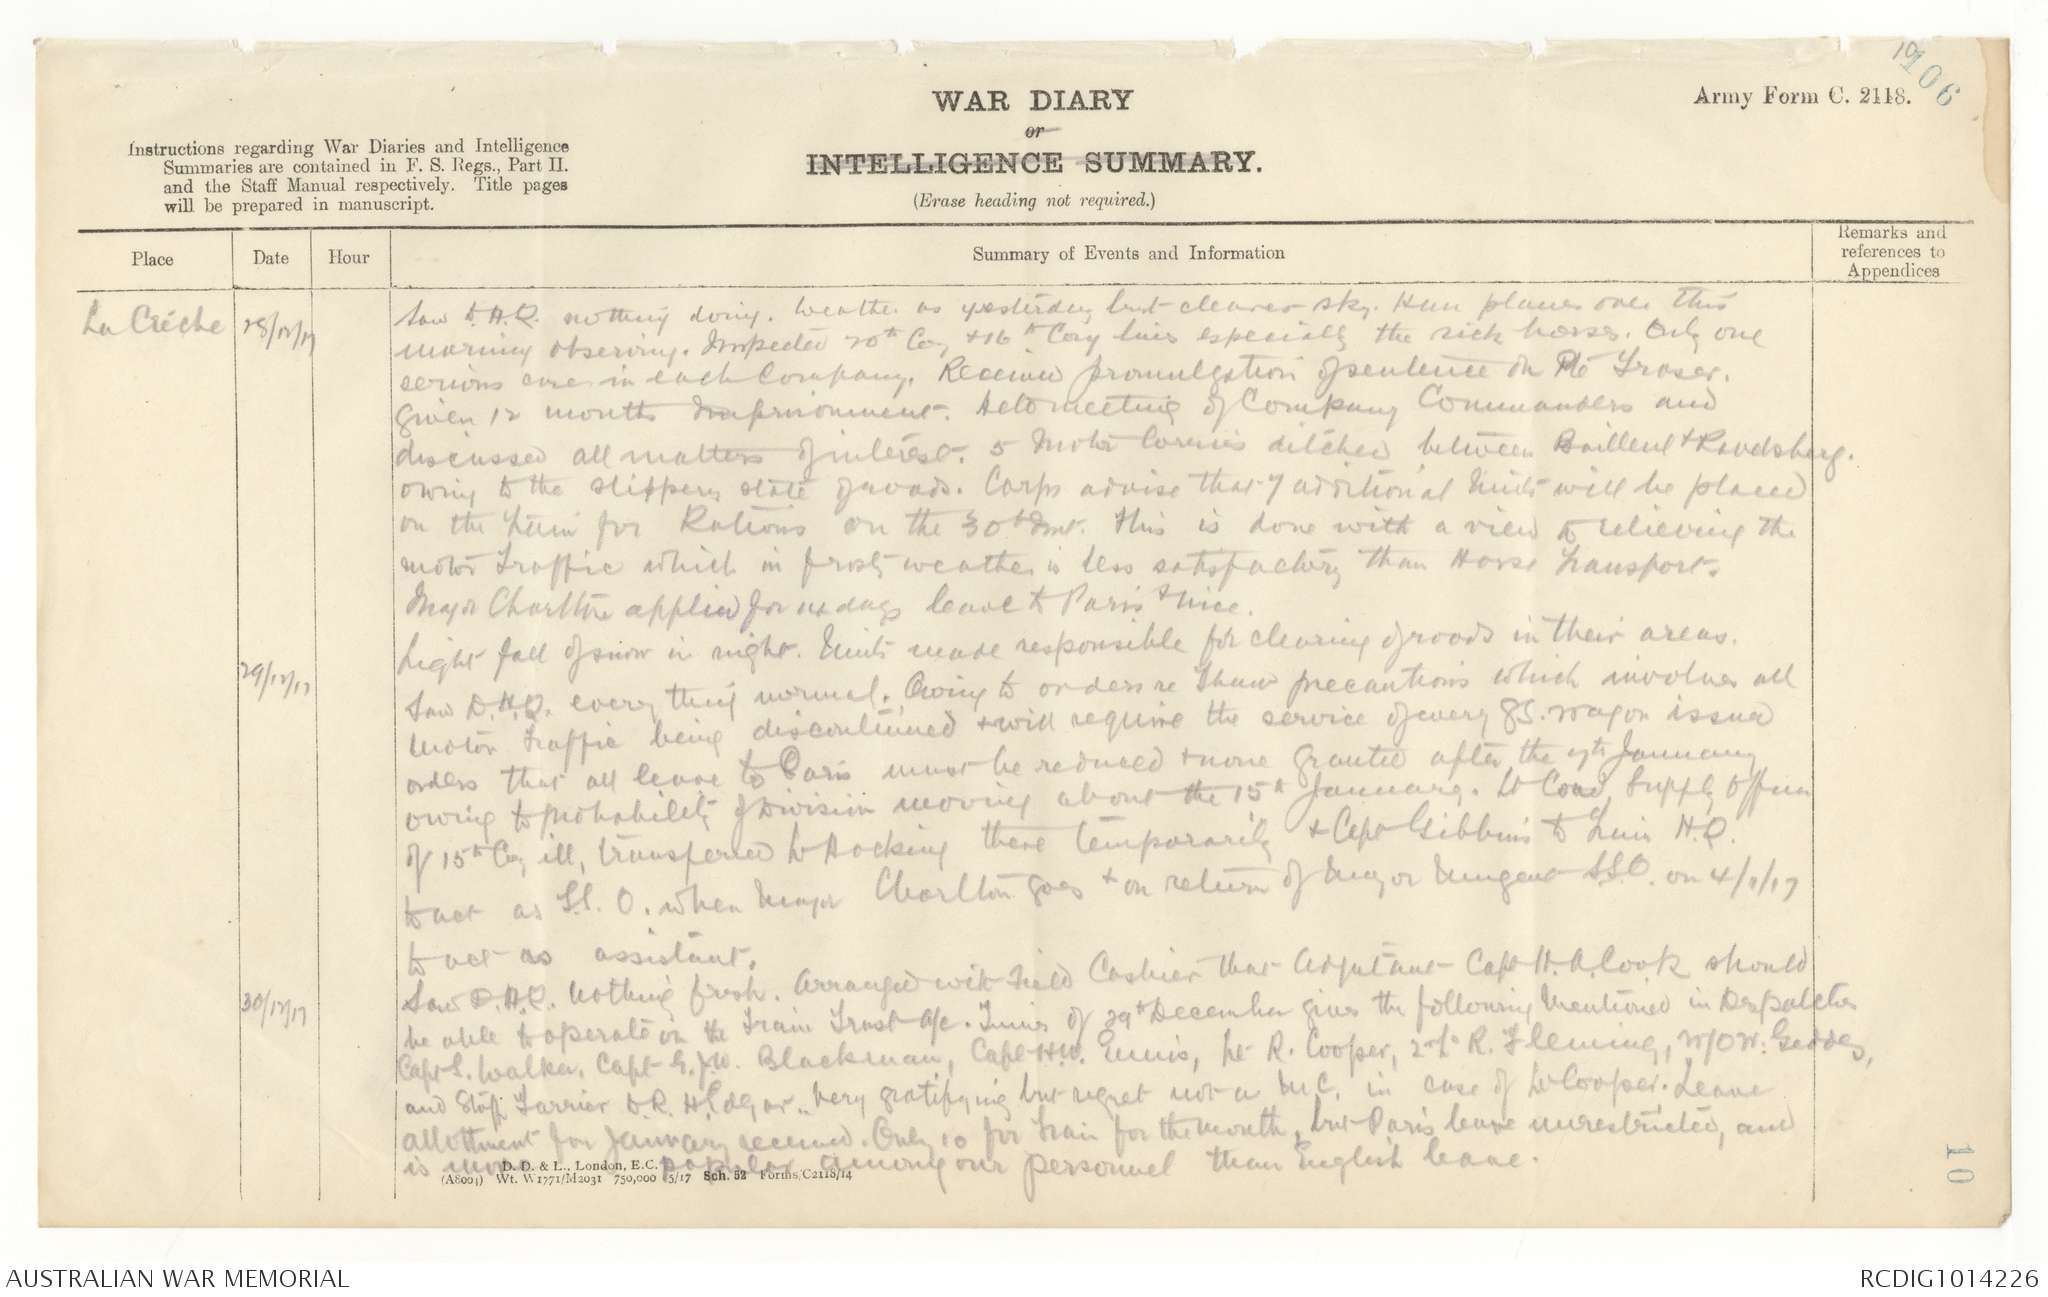 10
106
WAR DIARY
Army Form C. 2118.
or
INTELLIGENCE SUMMARY.
(Erase heading not required.)
Instructions regarding War Diaries and Intelligence
Summaries are contained in F. S. Regs., Part II.
and the Staff Manual respectively. Title pages
will be prepared in manuscript.
Place
Date
Hour
Summary of Events and Information
Remarks and
references to
Appendices
La Créche
28/12/17
Saw D.H.Q. nothing doing. Weather as yesterday but clearer sky. Hun planes over this
morning observing. Inspected 20th Coy +16th Coy lines especially the sick horses. Only one
serious case in each Company. Received promulgation of sentence on Pte Fraser.
given 12 months Imprisonment. Held meeting of Company Commanders and
discussed all matters of interest. 5 Motor Lorries ditched between Bailleul +
owing to the slippery state of roads. Corps advise that 7 additional Units will be placed
on the Train for Rations on the 30th Inst. This is done with a view to relieving the
motor Traffic which in frosty weather is less satisfactory than Horse Transport.
Major Charlton applied for days leave to Paris + Nice.
29/12/17
Light fall of snow in night. Units made responsible for clearing of roads in their areas.
Saw D.H.Q. every thing normal. Owing to orders re Thaw precautions which involves all
motor Traffic being discontinued + will require the service of every G.S. wagon issued
orders that all leave to Paris must be reduced + none granted after the January
owing to probability of Division moving about the 15th January. Lt Coad Supply Officer
of 15th Coy ill, transferred Lt Hocking there temporarily + Capt Gibbins to Train H.Q.
to act as S.S.O. when Major Charlton goes + on return of Major Nugent S.S.O. on 4/1/17
to act as assistant.
30/12/17
Saw D.H.Q. Nothing fresh. Arranged with Field Cashier that Adjutant Capt H.A. Cook should
be able to operate on the Train Trust a/c. Times of 29th December gives the following Mentioned in Despatches
Capt S. Walker, Capt E.J.W. Blackman, Capt H.W. Ennis, Lt R. Cooper, 2nd Lt R. Fleming, W/O W. Geddes,
and Staff Farrier R. H. Edgar. Very gratifying but regret not a M.C. in case of Lt Cooper. Leave
allotment for January received. Only 10 for Train for the month, but Paris leave unrestricted, and
is more popular among our personnel than English leave.
D. D. & L., London, E.C.
(A8001) Wt. W1771/M2031 750,000 5/17 Sch. 52 Forms/C2118/14
10
AUSTRALIAN WAR MEMORIAL
RCDIG1014226